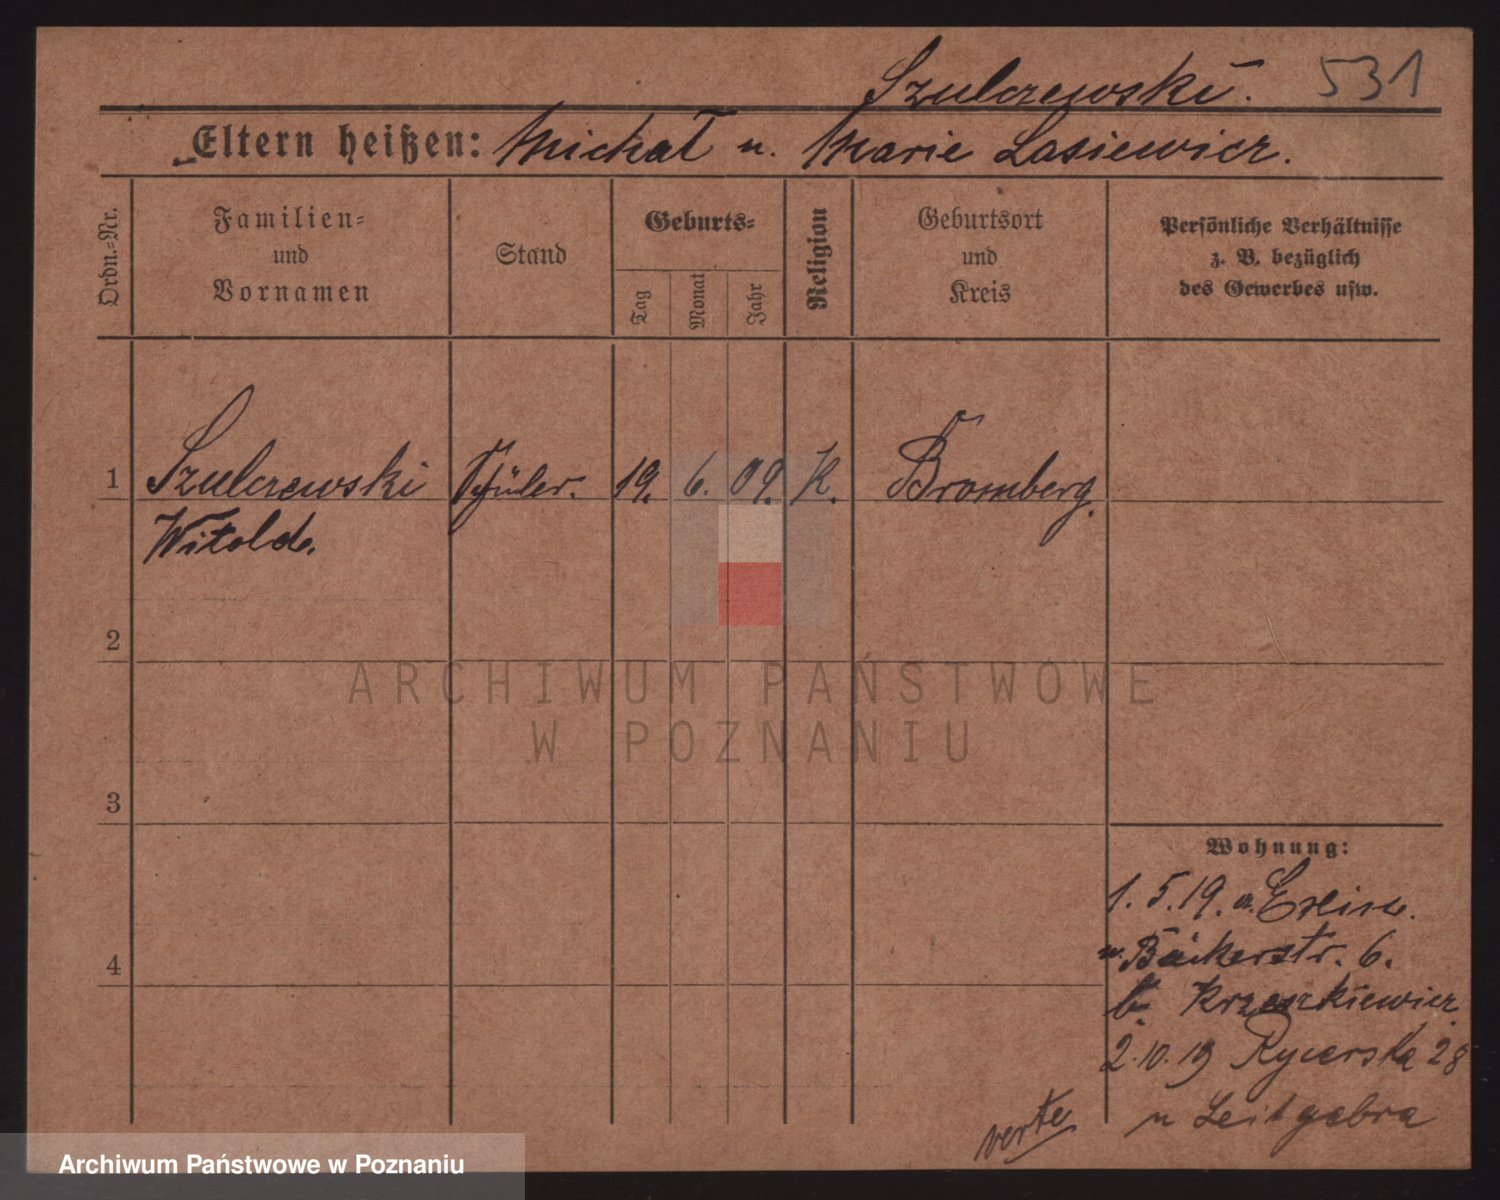 Szulczewski. 531
Eltern heißen: Michał u. Marie Lasiewicz.
Ordn.-Nr.
Familien-
und
Vornamen
Stand
Geburts-
Tag
Monat
Jahr
Religion
Geburtsort
und
Kreis
Persönliche Verhältnisse
z. B. bezüglich
des Gewerbes usw.
1 Szulczewski Schüler. 19. 6. 09. K. Bromberg.
Witold.
2
3
4
Wohnung:
1. 5. 19. a.
n. Bäckerstr. 6.
b. Krzeszkiewicz.
2.10.19 Rycerska 28
u Leitgebra
verte
ARCHIWUM PAŃSTWOWE
W POZNANIU
Archiwum Państwowe w Poznaniu